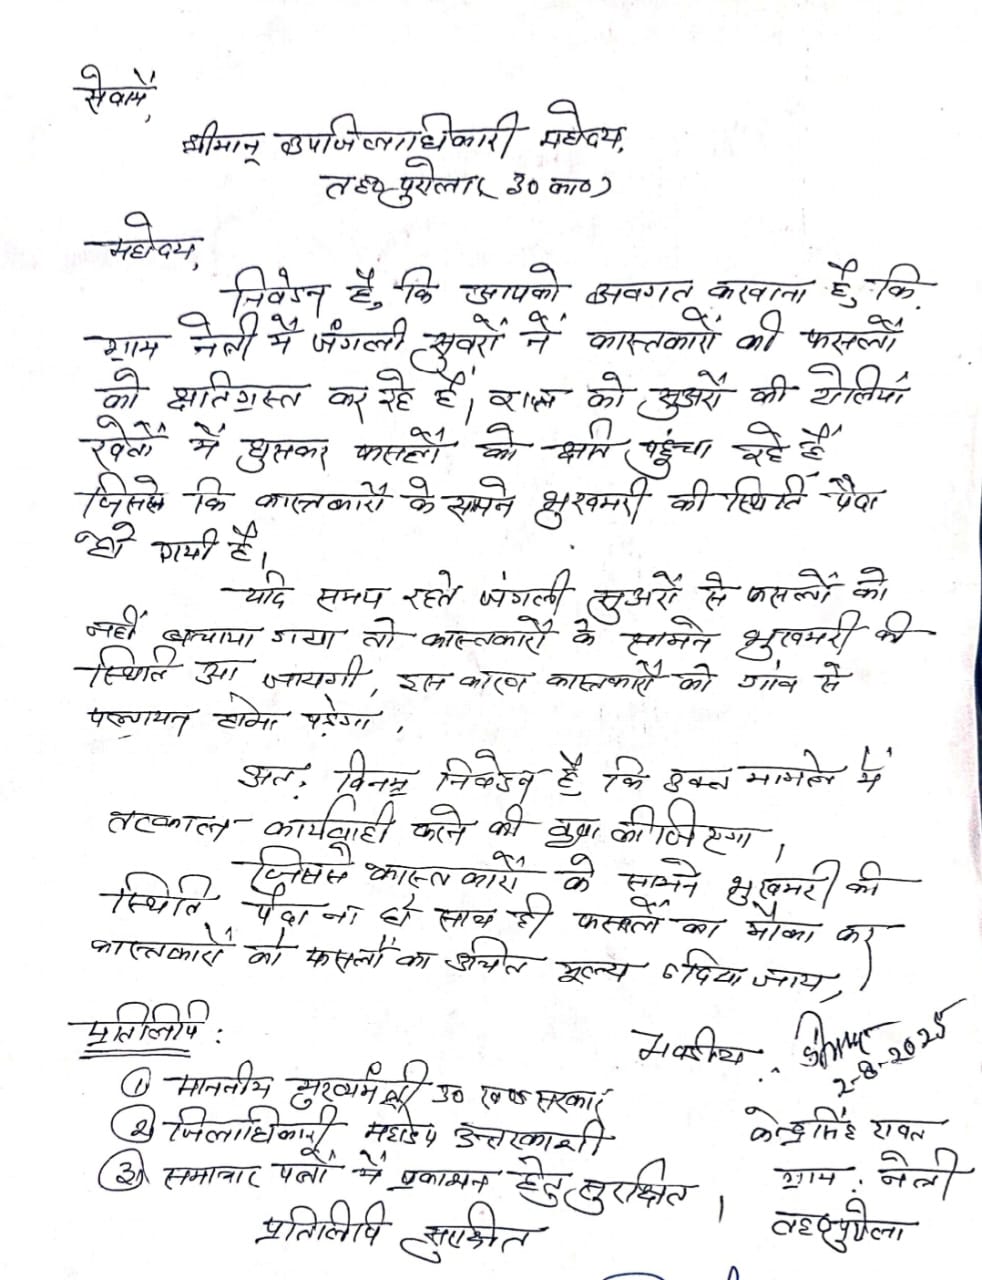 सेवामें,
श्रीमान् उपजिलाधिकारी महोदय,
तह० पुरोला (उ० का०)
महोदय,
निवेदन है, कि आपको अवगत करवाना है, कि
ग्राम नेत्री में जंगली सुवरों नें कास्तकारों की फसलों
को क्षतिग्रस्त कर रहे हैं, रात्र को सुअरों की टोलियां
खेतों में घुसकर फसलों को क्षति पहुंचा रहे हैं
जिससे कि कास्तकारों के सामने भुखमरी की स्थिति पैदा
हो गयी है।
यदि समय रहते जंगली सुअरों से फसलों को
नहीं बचाया गया तो कास्तकारों के सामने भुखमरी की
स्थिति आ जायगी, इस कारण कास्तकारों को गांव से
पलायन होना पड़ेगा,
अत: विनम्र निवेदन है कि उक्त मामले में
तत्काल कार्यवाही करने की कृपा कीजिएगा,
जिससे कास्तकारों के सामने भुखमरी की
स्थिति पैदा ना हो साथ ही फसलों का मौका कर
कास्तकारों को फसलों का उचित मूल्य दिया जाय,
प्रतिलिपि:
भवदीय
2-8-2025
① माननीय मुख्यमंत्री उ० खण्ड सरकार
② जिलाधिकारी महोदय उत्तरकाशी
केन्द्र सिंह रावत
③ समाचार पत्रों में प्रकाशन हेतु सुरक्षित,
ग्राम: नेत्री
प्रतिलिपि सुरक्षित
तह० पुरोला